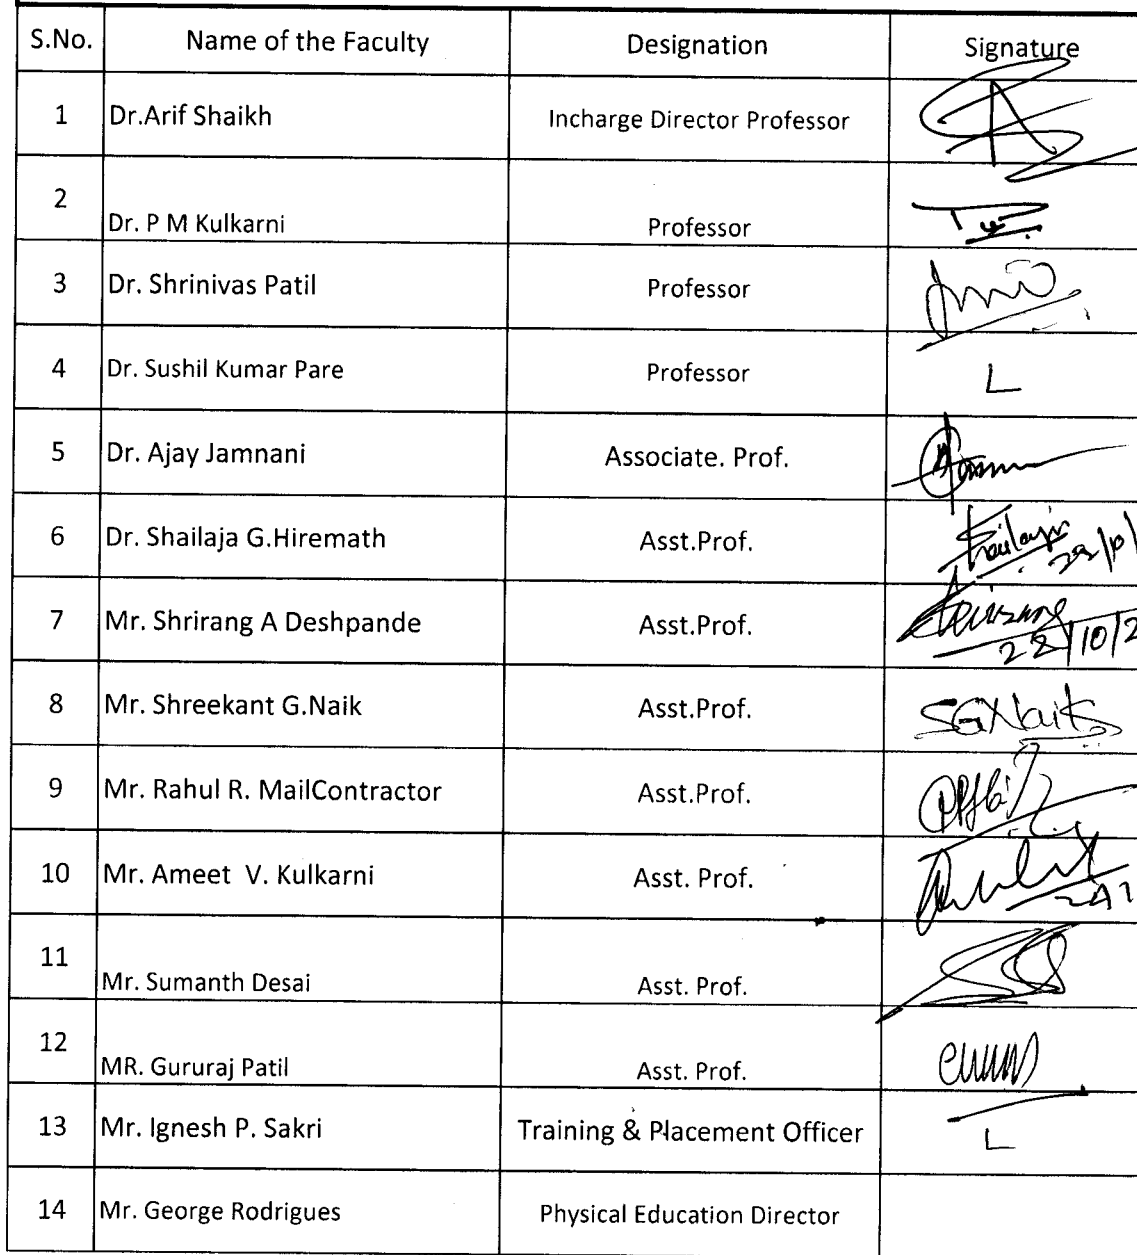 S.No. Name of the Faculty Designation Signature
1 Dr.Arif Shaikh Incharge Director Professor
2 Dr. P M Kulkarni Professor
3 Dr. Shrinivas Patil Professor
4 Dr. Sushil Kumar Pare Professor L
5 Dr. Ajay Jamnani Associate. Prof.
6 Dr. Shailaja G.Hiremath Asst.Prof. Shailaja
7 Mr. Shrirang A Deshpande Asst.Prof. Shrirang 28/10/2
8 Mr. Shreekant G.Naik Asst.Prof. SGNaik
9 Mr. Rahul R. MailContractor Asst.Prof.
10 Mr. Ameet V. Kulkarni Asst. Prof.
11 Mr. Sumanth Desai Asst. Prof.
12 MR. Gururaj Patil Asst. Prof.
13 Mr. Ignesh P. Sakri Training & Placement Officer L
14 Mr. George Rodrigues Physical Education Director